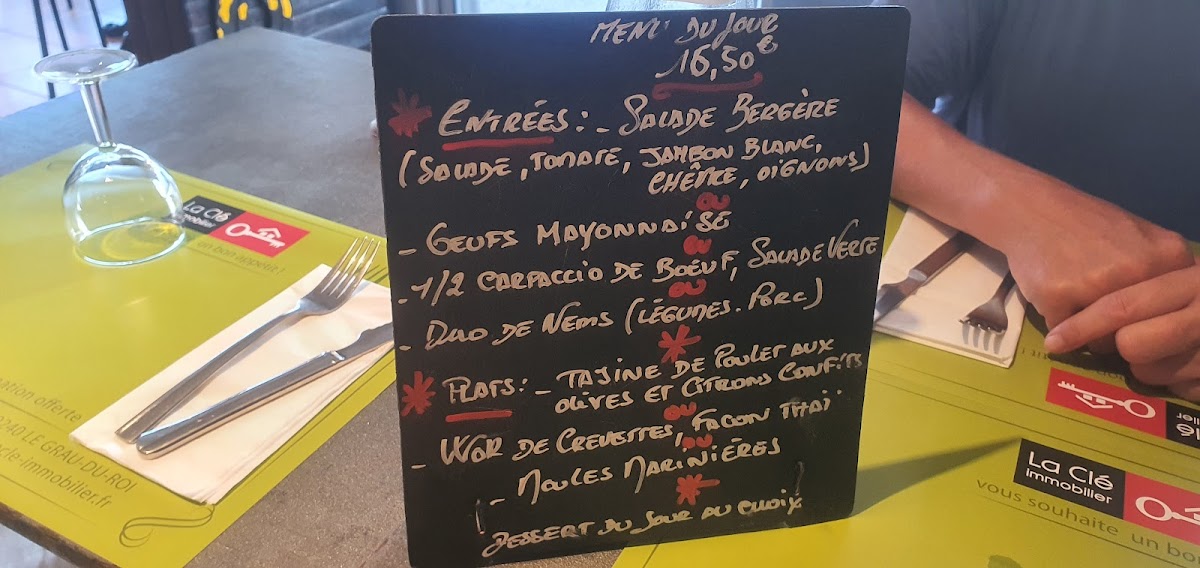 MENU DU JOUR
16,50€
* ENTRÉES: - SALADE BERGÈRE
(SALADE, TOMATE, JAMBON BLANC,
CHÈVRE, OIGNONS)
OU
- OEUFS MAYONNAISE
OU
- 1/2 CARPACCIO DE BOEUF, SALADE VERTE
OU
- DUO DE NEMS (LÉGUMES. PORC)
*
* PLATS: - TAJINE DE POULET AUX
OLIVES ET CITRONS CONFITS
OU
- WOK DE CREVETTES, FACON THAÏ
OU
- MOULES MARINIÈRES
*
DESSERT DU JOUR AU CHOIX
La Clé
immobilier
un bon appétit !
offerte
LE GRAU-DU-ROI
cle-immobilier.fr
La Clé
immobilier
vous souhaite un bon